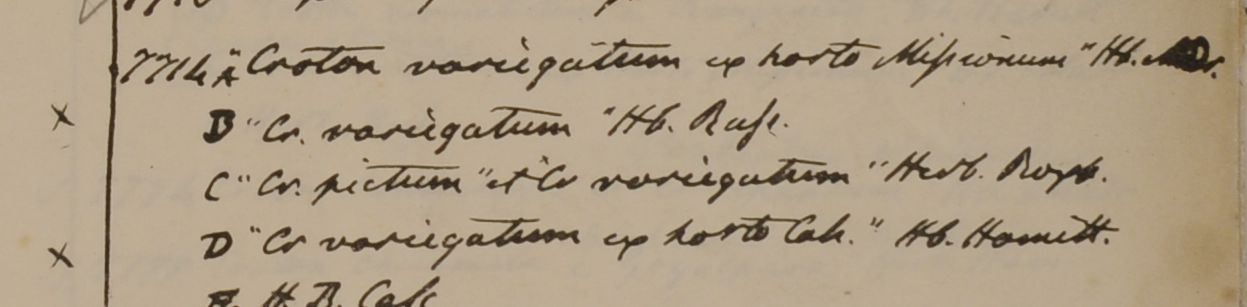 7714 A "Croton variegatum ex horto Missionum" Hb.
B "Cr. variegatum "Hb. Russ.
C "Cr. pictum" et Cr variegatum" Herb. Roxb.
D "Cr variegatum ex horto Calc." Hb. Hamilt.
H. B. Calc